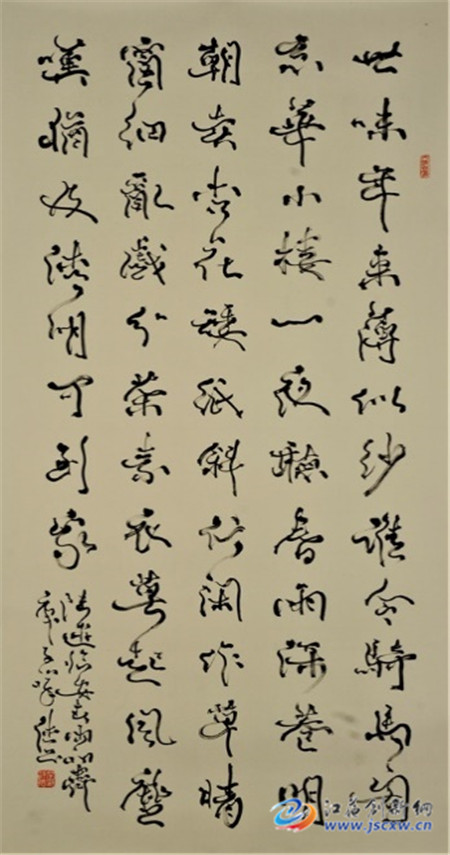 世味年来薄似纱誰令騎馬客
京華小楼一夜聽春雨深巷明
朝卖杏花矮紙斜行闲作草晴
窗細乳戲分茶素衣莫起風塵
嘆猶及清明可到家
陆游临安春雨初霁
江苏创新网
www.jscxw.cn